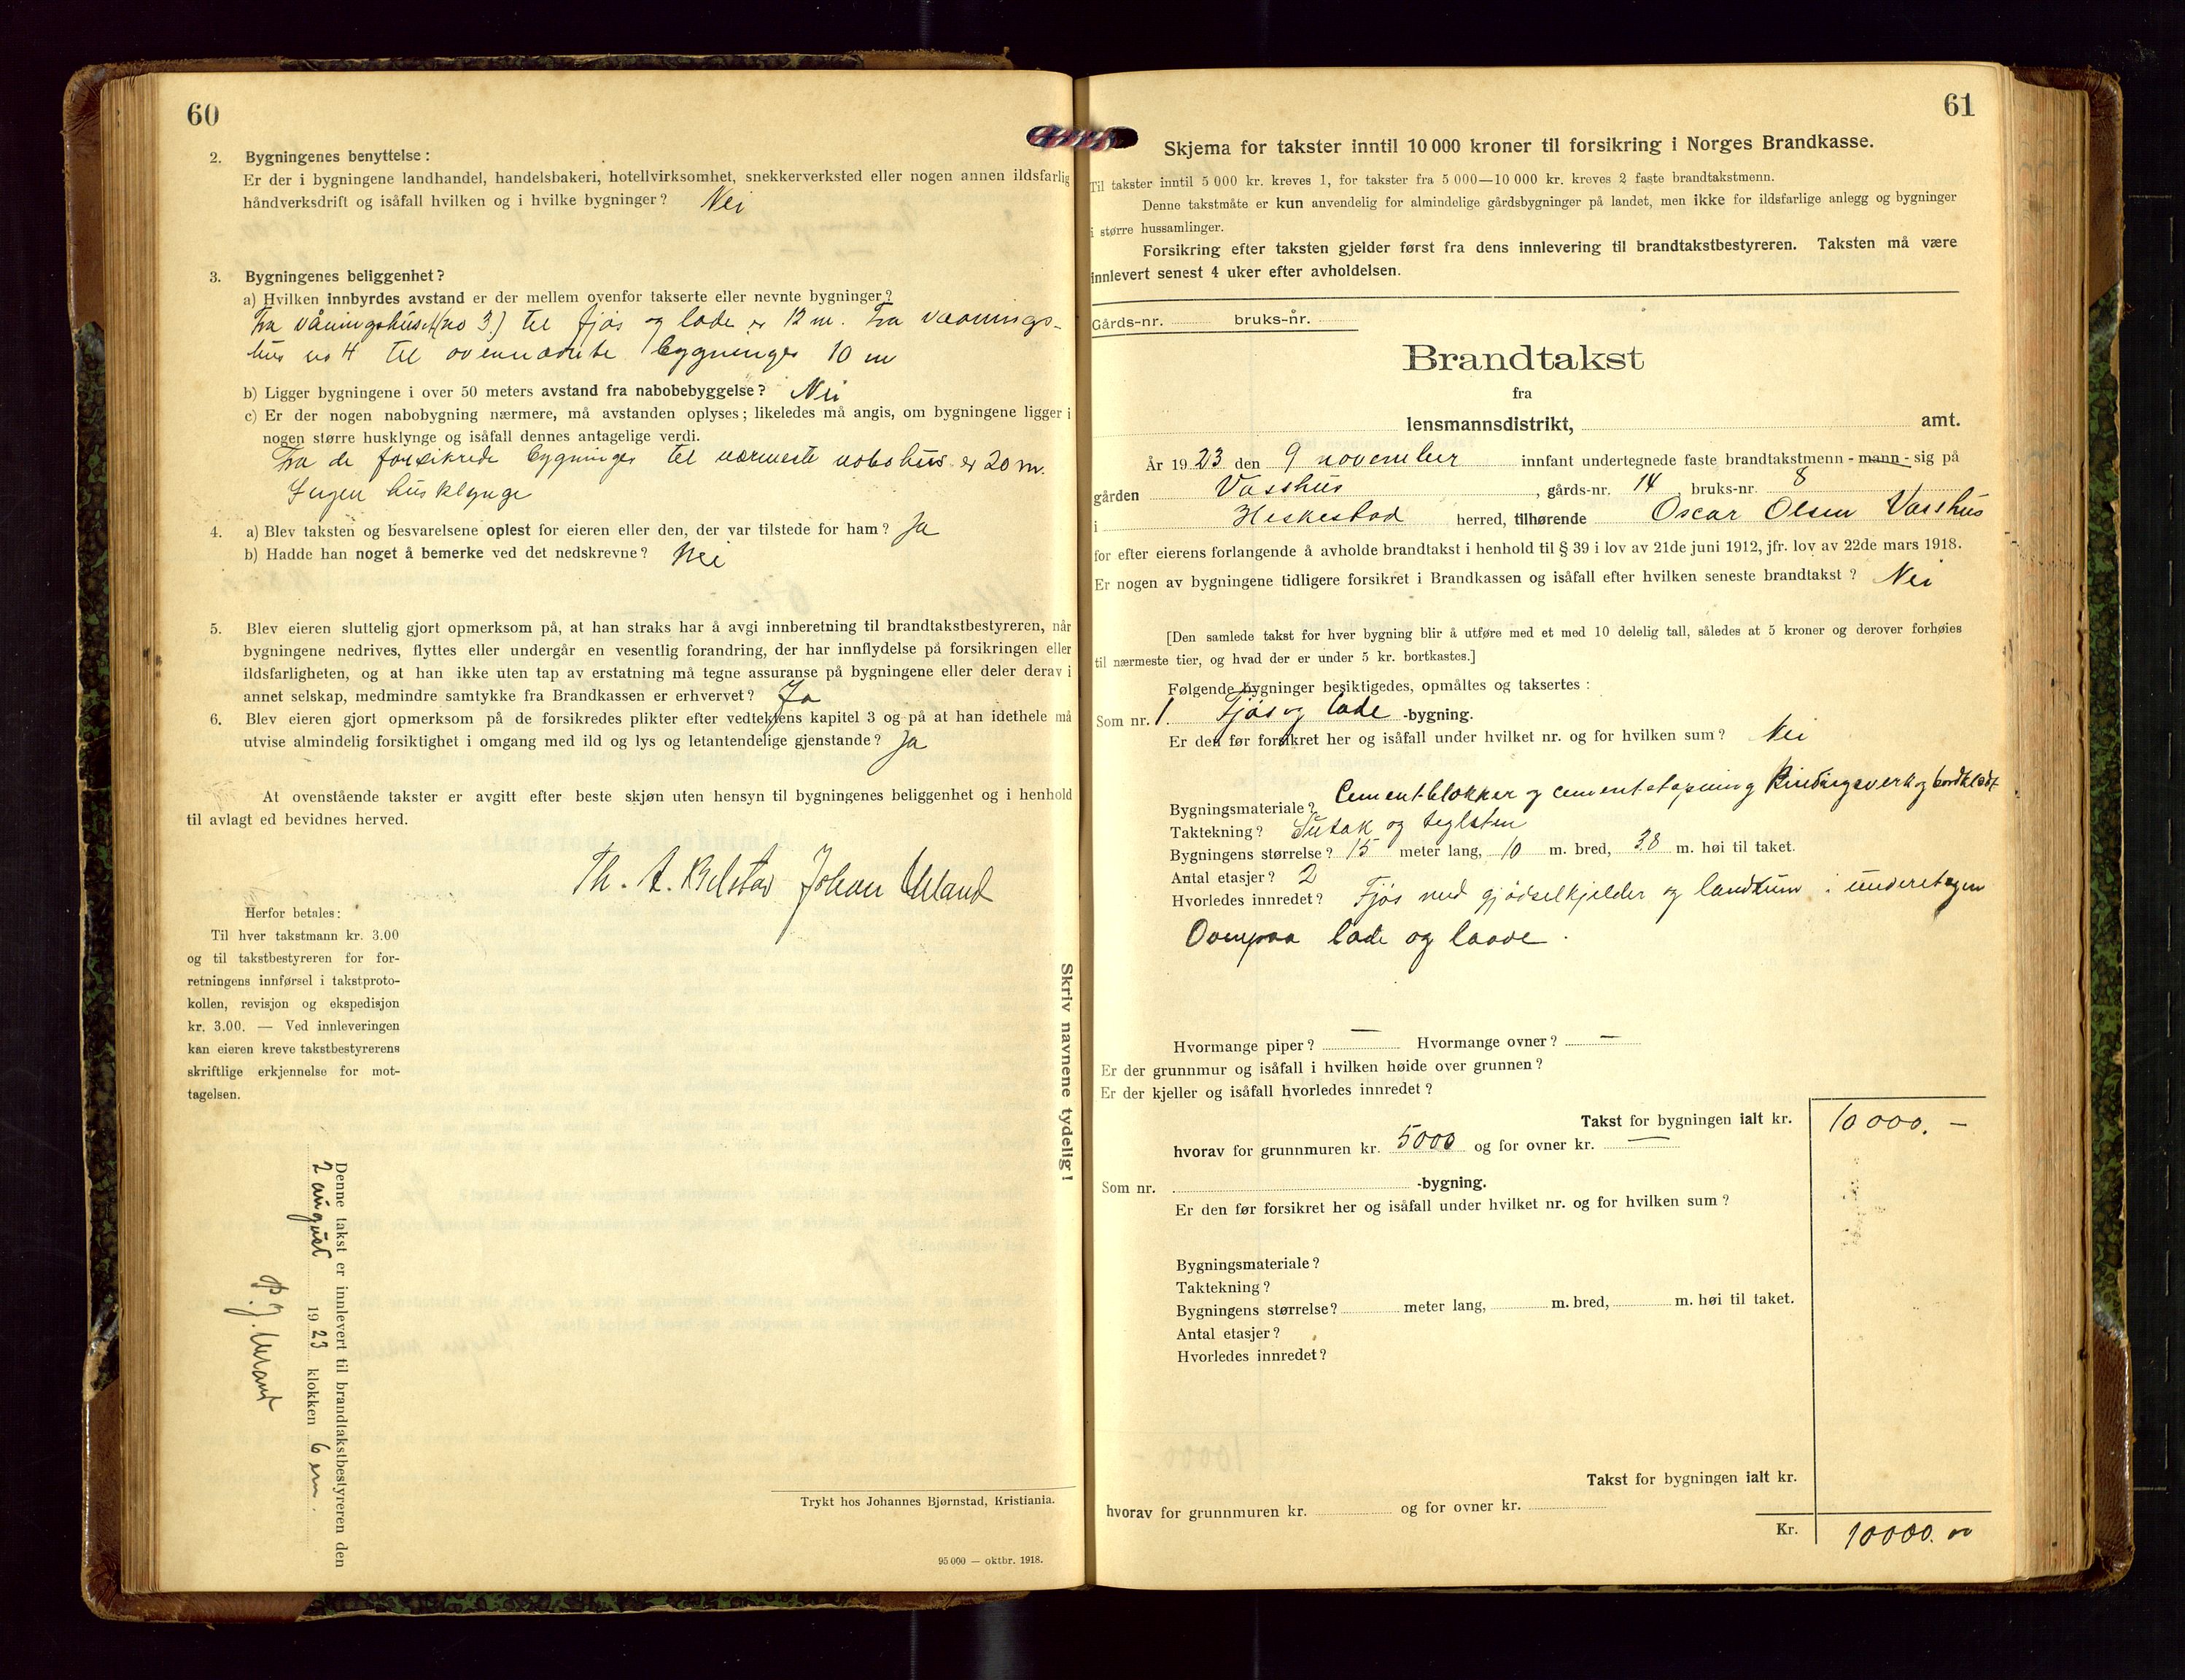 60
2. Bygningenes benyttelse:
Er der i bygningene landhandel, handelsbakeri, hotellvirksomhet, snekkerverksted eller nogen annen ildsfarlig
håndverksdrift og isåfall hvilken og i hvilke bygninger? Nei
3. Bygningenes beliggenhet?
a) Hvilken innbyrdes avstand er der mellem ovenfor takserte eller nevnte bygninger?
Fra våningshuset (no 3.) til fjøs og lade er 12 m. Fra vaanings-
hus no 4 til ovennævnte bygninger 10 m
b) Ligger bygningene i over 50 meters avstand fra nabobebyggelse? Nei
c) Er der nogen nabobygning nærmere, må avstanden oplyses; likeledes må angis, om bygningene ligger i
nogen større husklynge og isåfall dennes antagelige verdi.
Fra de forsikrede bygninger til nærmeste nabohus er 20 m.
Ingen husklynge
4. a) Blev taksten og besvarelsene oplest for eieren eller den, der var tilstede for ham? Ja
b) Hadde han noget å bemerke ved det nedskrevne? Nei
5. Blev eieren sluttelig gjort opmerksom på, at han straks har å avgi innberetning til brandtakstbestyreren, når
bygningene nedrives, flyttes eller undergår en vesentlig forandring, der har innflydelse på forsikringen eller
ildsfarligheten, og at han ikke uten tap av erstatning må tegne assuranse på bygningene eller deler derav i
annet selskap, medmindre samtykke fra Brandkassen er erhvervet? Ja
6. Blev eieren gjort opmerksom på de forsikredes plikter efter vedtektens kapitel 3 og på at han idethele må
utvise almindelig forsiktighet i omgang med ild og lys og letantendelige gjenstande? Ja
At ovenstående takster er avgitt efter beste skjøn uten hensyn til bygningenes beliggenhet og i henhold
til avlagt ed bevidnes herved.
Th. A. Johan Urland
Herfor betales:
Til hver takstmann kr. 3.00
og til takstbestyreren for for-
retningens innførsel i takstproto-
kollen, revisjon og ekspedisjon
kr. 3.00. — Ved innleveringen
kan eieren kreve takstbestyrerens
skriftlige erkjennelse for mot-
tagelsen.
Skriv navnene tydelig!
Denne takst er innlevert til brandtakstbestyreren den
2 august 1923 klokken 6 em.
P. J. Urland
Trykt hos Johannes Bjørnstad, Kristiania.
95 000 — oktbr. 1918.
61
Skjema for takster inntil 10 000 kroner til forsikring i Norges Brandkasse.
Til takster inntil 5 000 kr. kreves 1, for takster fra 5 000—10 000 kr. kreves 2 faste brandtakstmenn.
Denne takstmåte er kun anvendelig for almindelige gårdsbygninger på landet, men ikke for ildsfarlige anlegg og bygninger
i større hussamlinger.
Forsikring efter taksten gjelder først fra dens innlevering til brandtakstbestyreren. Taksten må være
innlevert senest 4 uker efter avholdelsen.
Gårds-nr. bruks-nr.
Brandtakst
fra
lensmannsdistrikt, amt.
År 1923 den 9 november innfant undertegnede faste brandtakstmenn - mann - sig på
gården Vasshus, gårds-nr. 14 bruks-nr. 8
i Heskestad herred, tilhørende Oscar Olsen Vasshus
for efter eierens forlangende å avholde brandtakst i henhold til § 39 i lov av 21de juni 1912, jfr. lov av 22de mars 1918.
Er nogen av bygningene tidligere forsikret i Brandkassen og isåfall efter hvilken seneste brandtakst? Nei
[Den samlede takst for hver bygning blir å utføre med et med 10 delelig tall, således at 5 kroner og derover forhøies
til nærmeste tier, og hvad der er under 5 kr. bortkastes.]
Følgende bygninger besiktigedes, opmåltes og taksertes:
Som nr. 1. Fjøs og lade -bygning.
Er den før forsikret her og isåfall under hvilket nr. og for hvilken sum? Nei
Bygningsmateriale? Cementblokker og cementstøpning Bindingsverk og bordklædt
Taktekning? Sutak og teglsten
Bygningens størrelse? 15 meter lang, 10 m. bred, 3.8 m. høi til taket.
Antal etasjer? 2
Hvorledes innredet? Fjøs med gjødselkjelder og landkum i underetagen
Ovenpaa lade og laave.
Hvormange piper? — Hvormange ovner? —
Er der grunnmur og isåfall i hvilken høide over grunnen?
Er der kjeller og isåfall hvorledes innredet?
Takst for bygningen ialt kr. 10 000. —
hvorav for grunnmuren kr. 5000 og for ovner kr. —
Som nr. -bygning.
Er den før forsikret her og isåfall under hvilket nr. og for hvilken sum?
Bygningsmateriale?
Taktekning?
Bygningens størrelse? meter lang, m. bred, m. høi til taket.
Antal etasjer?
Hvorledes innredet?
Takst for bygningen ialt kr.
hvorav for grunnmuren kr. og for ovner kr.
Kr. 10000.00